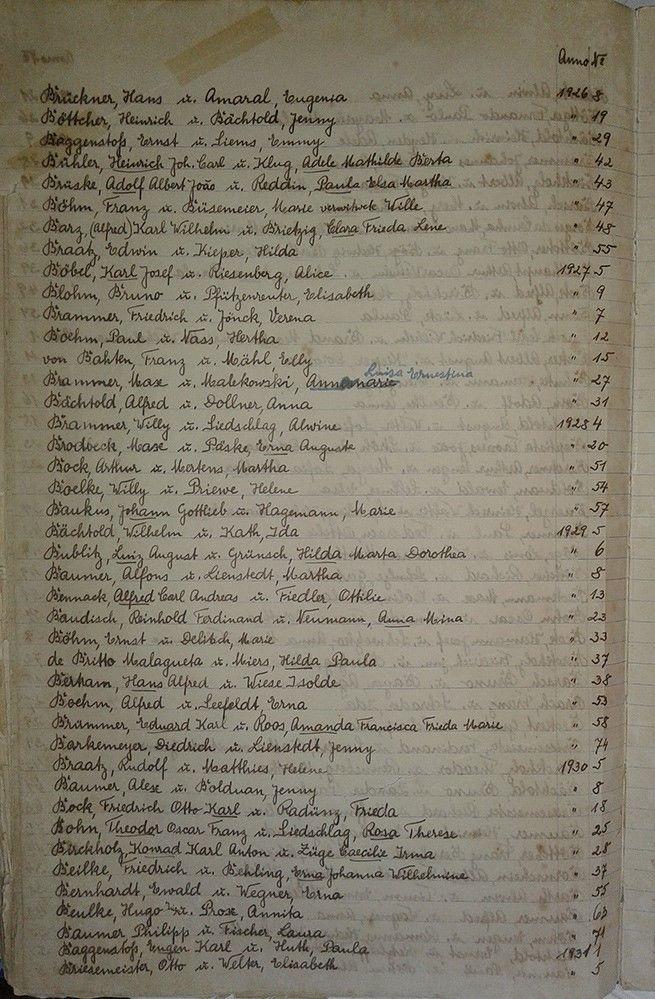 Anno №
Brückner, Hans u. Amaral, Eugenia 1926 8
Böttcher, Heinrich u. Bächtold, Jenny " 19
Baggenstoß, Ernst u. Liems, Emmy " 29
Bühler, Heinrich Joh. Carl u. Klug, Adele Mathilde Berta " 42
Brüske, Adolf Albert João u. Reddin, Paula Elsa Martha " 43
Böhm, Franz u. Büsemeier, Marie verwitwete Wille " 47
Barz, (Alfred) Karl Wilhelm u. Brietzig, Clara Frieda Lene " 48
Braatz, Edwin u. Kieper, Hilda " 55
Böbel, Karl Josef u. Riesenberg, Alice 1927 5
Blohm, Bruno u. Pfützenreuter, Elisabeth " 9
Brammer, Friedrich u. Jönck, Verena " 7
Boehm, Paul u. Nass, Hertha " 12
von Bahten, Franz u. Mähl, Elly " 15
Brammer, Max u. Malekowski, Annemarie Luisa Ernestina " 27
Bächtold, Alfred u. Dollner, Anna " 31
Brammer, Willy u. Liedschlag, Alwine 1928 4
Brodbeck, Max u. Päske, Erna Auguste " 20
Bock, Arthur u. Mertens, Martha " 51
Boelke, Willy u. Priewe, Helene " 54
Baukus, Johann Gottlieb u. Hagemann, Marie " 57
Bächtold, Wilhelm u. Kath, Ida 1929 5
Bublitz, Luiz, August u. Grünsch, Hilda Marta Dorothea " 6
Baumer, Alfons u. Lienstedt, Martha " 8
Bennack, Alfred Carl Andreas u. Fiedler, Ottilie " 13
Baudisch, Reinhold Ferdinand u. Neumann, Anna Mina " 23
Böhm, Ernst u. Delitsch, Marie " 33
de Britto Malagueta u. Miers, Hilda Paula " 37
Bertram, Hans Alfred u. Wiese Isolde " 38
Boehm, Alfred u. Leefeldt, Erna " 53
Brammer, Eduard Karl u. Roos, Amanda Francisca Frieda Marie " 58
Barkemeyer, Diedrich u. Lienstedt, Jenny " 74
Braatz, Rudolf u. Matthies, Helene 1930 5
Baumer, Alex u. Bolduan, Jenny " 8
Bock, Friedrich Otto Karl u. Radünz, Frieda " 18
Bohn, Theodor Oscar Franz u. Liedschlag, Rosa Therese " 25
Birckholz, Konrad Karl Anton u. Züge Caecilie Irma " 28
Beilke, Friedrich u. Behling, Erna Johanna Wilhelmine " 37
Bernhardt, Ewald u. Wegner, Erna " 55
Beulke, Hugo u. Prose, Annita "
Baumer Philipp u. Fischer, Laura " 71
Baggenstoß, Eugen Karl u. Huth, Paula 1931 1
Briesemeister, Otto u. Welter, Elisabeth " 5